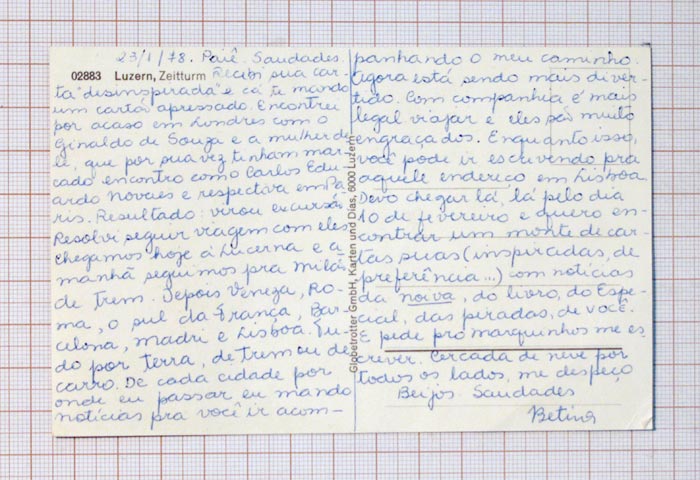 23/1/78. Paiê. Saudades.
02883 Luzern, Zeitturm
Recebi sua car-
ta "desinspirada" e cá te mando
um cartá apressado. Encontrei
por acaso em Londres com o
Ginaldo de Souza e a mulher de
le, que por sua vez tinham mar-
cado encontro como Carlos Edu
ardo Novaes e respectiva em Pa
ris. Resultado: virou excursão.
Resolvi seguir viagem com eles
chegamos hoje á Lucerna e a
manhã seguimos pra milão
de trem. Depois Veneza, Ro-
ma, o sul da França, Bar
celona, madri e Lisboa. Tu-
do por terra, de trem ou de
carro. De cada cidade por
onde eu passar eu mando
notícias pra você ir acom-
Globetrotter GmbH, Karten und Dias, 6000 Luzern
panhando o meu caminho.
Agora está sendo mais diver-
tido. Com companhia é mais
legal viajar e eles são muito
engraçados. Enquanto isso,
você pode ir escrevendo pra
aquele endereço em Lisboa.
Devo chegar lá, lá pelo dia
10 de fevereiro e quero en-
contrar um monte de car-
tas suas (inspiradas, de
preferência...) com notícias
da noiva, do livro, do Espe-
cial, das piradas, de você.
E pede pro marquinhos me es-
crever. Cercada de neve por
todos os lados, me despeço
Beijos Saudades
Betina